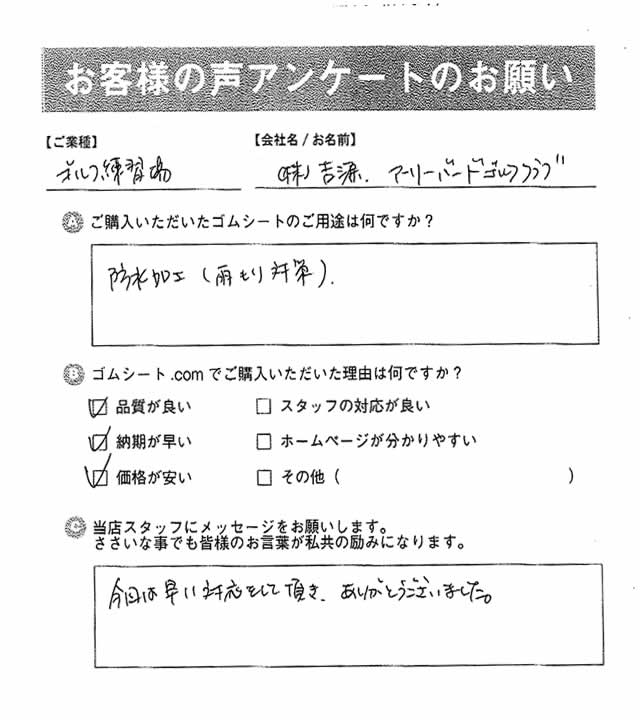 お客様の声アンケートのお願い
【ご業種】 【会社名/お名前】
ゴルフ練習場 (株)吉源. アーリーバードゴルフクラブ
A ご購入いただいたゴムシートのご用途は何ですか?
防水加工(雨もり対策).
B ゴムシート.comでご購入いただいた理由は何ですか?
品質が良い スタッフの対応が良い
納期が早い ホームページが分かりやすい
価格が安い その他( )
C 当店スタッフにメッセージをお願いします。
ささいな事でも皆様のお言葉が私共の励みになります。
今回は早い対応をして頂き、ありがとうございました。